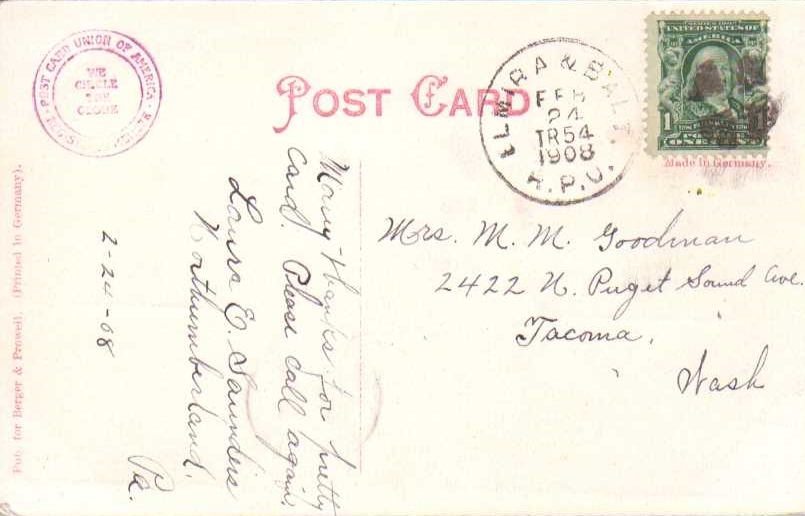 POST CARD UNION OF AMERICA
WE
CIRCLE
THE
GLOBE
POST CARD
ELMIRA & BALT
FEB
24
TR54
1908
R.P.O.
SERIES 1902
UNITED STATES OF AMERICA
1
1
ONE CENT
Made in Germany.
Many thanks for pretty
card. Please call again.
Laura E. Saunders
Northumberland,
Pa.
2-24-08
Mrs. M. M. Goodman
2422 N. Puget Sound Ave.
Tacoma,
Wash
Pub. for Berger & Prowell. (Printed in Germany).